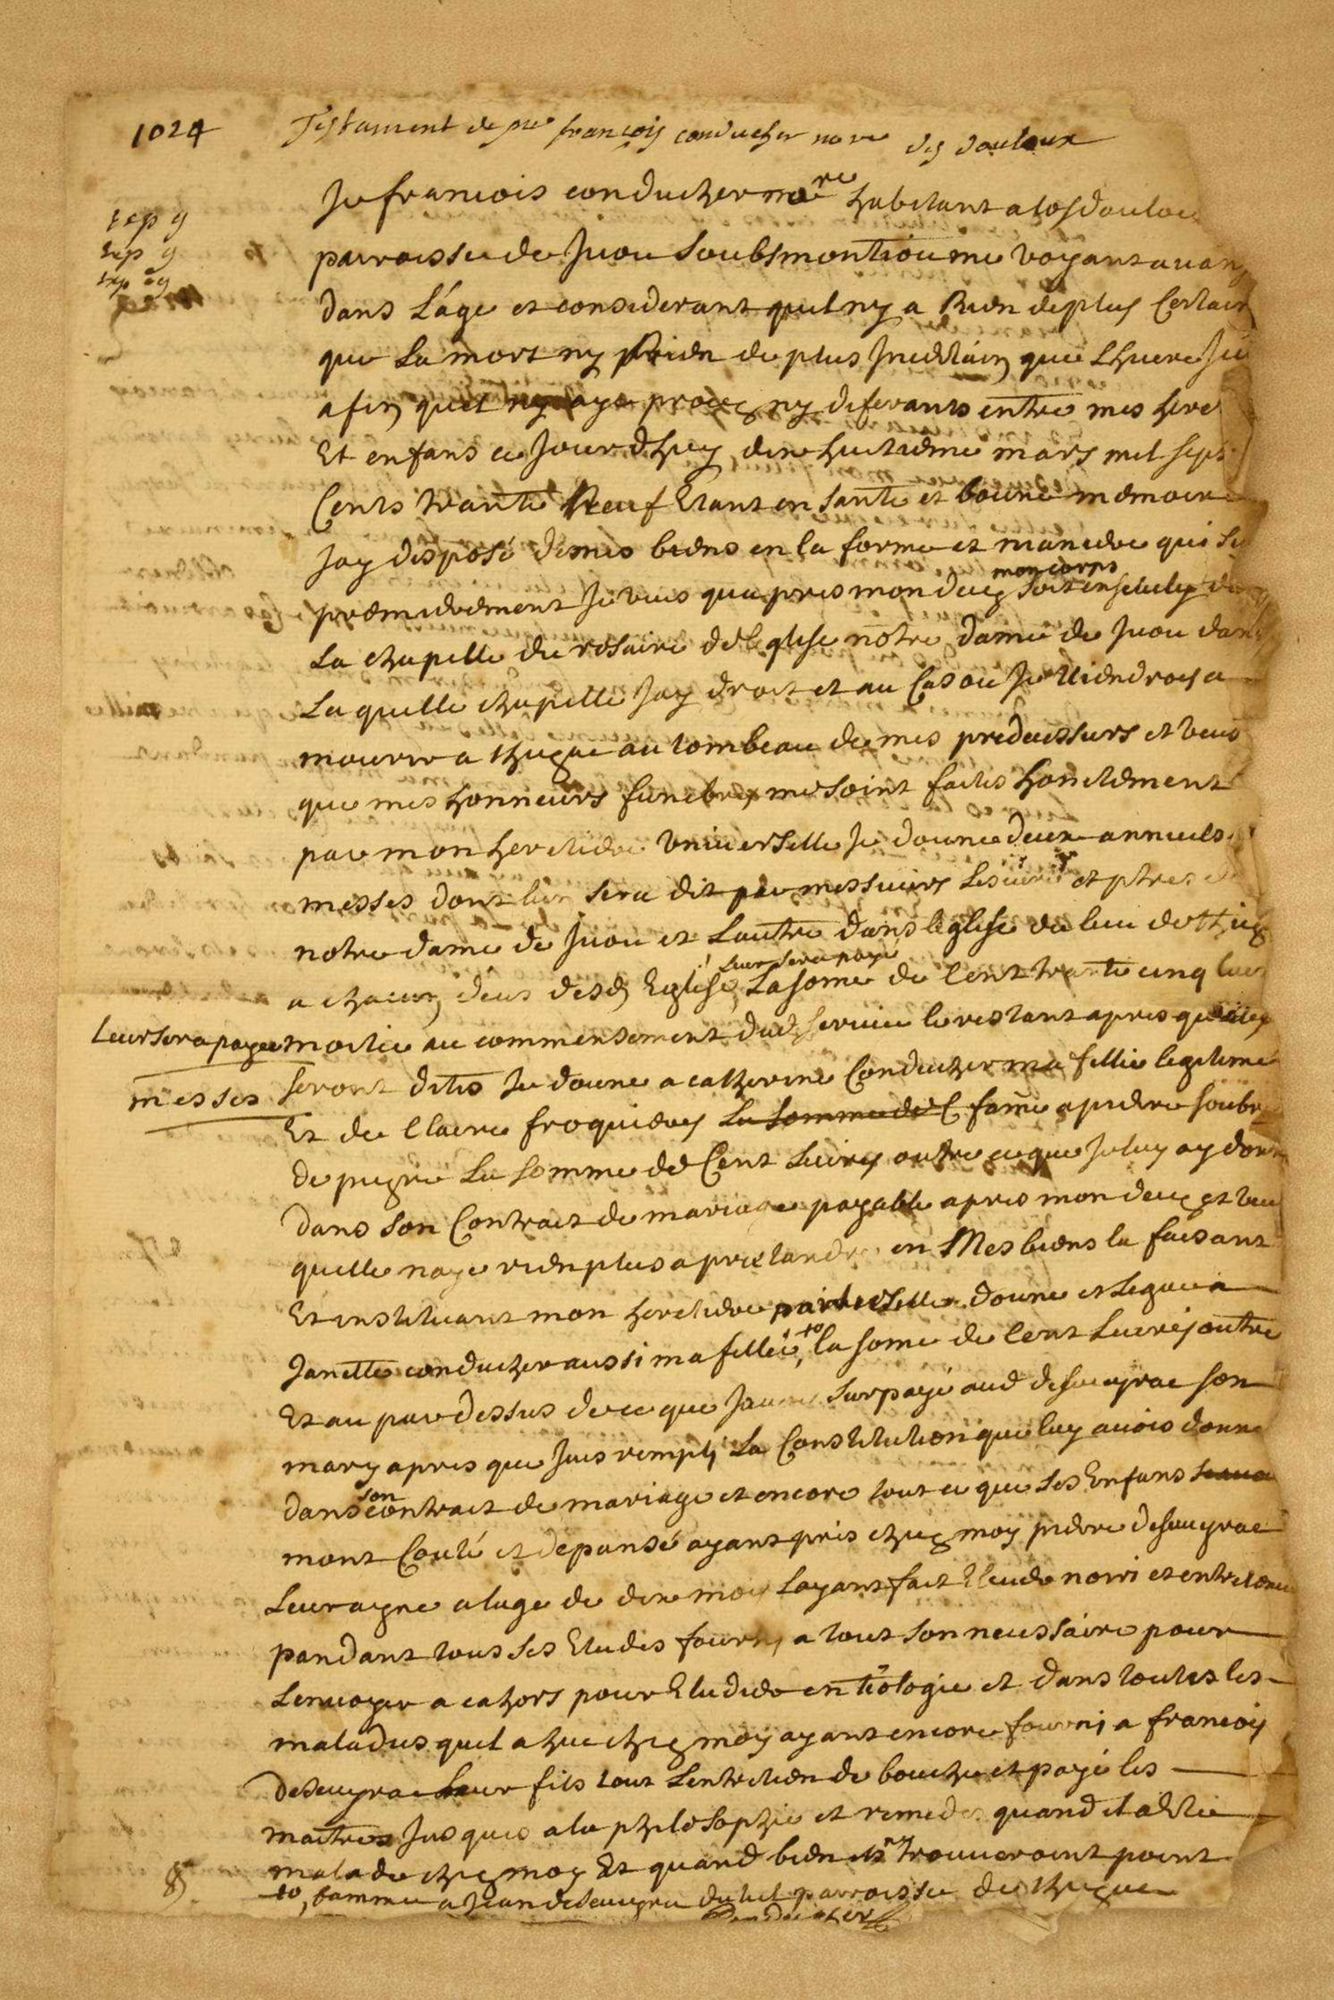 1024
Testament de me françois conducher nore des douloux
Je francois conducher nore habitant a los doulou
parroisse de Juou soubsmontiou me voyant auan
dans L'age et considerant quil ny a Rien de plus Certain
que La mort ny Rien de plus Incertain que Lheure Je
afin quil ny aye proces ny diferants entre mes here
Et enfans ce Jourdhuy dixhuitieme mars mil sept
Cents trante Neuf Etant en sante et bonne memoire
Jay disposé de mes biens en la forme et maniere qui s
premierement Je veus quapres mon deces mon corps soit enseuely d
La chapelle du rosaire de leglise notre dame de Juou dans
La quelle chapelle Jay droit et au Cas ou Je viendrois a
mourir a au tombeau de mes predecessurs et veus
que mes honneurs funebres me soint faits honetement
par mon heretiere universelle Je donne deux annuels
messes dont lun sera dit par messieurs Les cures et ptres
notre dame de Juou et Lautre dans leglise du lieu de
a chacun deus desd Eglise leur sera payé La some de Cent trante cinq liures
Leur sera payee moitie au commensement dud seruice le restant apres quelles
messes seront dites Je donne a catherine Conducher ma fillie legitime
Et de Claire froquieres La somme de C fame a piere soubr
de la somme de Cent Liures outre ce que Je luy ay donn
dans son Contrait de mariage payable apres mon deces et veu
quelle naye rien plus a pretandre en Mes biens la faisant
Et instituant mon heretiere particuliere donne et Legue a
Janette conducher aussi ma fillie, to la some de Cent Liures outre
Et au par dessus de ce que surpayé aud deseuyrac son
mary apres que Jeus rempli La Constitution que luy auois donne
dans son contrait de mariage et encore tout ce que ses Enfans
mont Couté et depansé ayant pris chez moy piere deseuyrac
Leur ayne a lage de dix mois Layant fait Etudie norri et entretenu
pandant tous ses Etudes fourny a tout son necessaire pour
Lenuoyer a cahors pour Etudier en tiologie et dans toutes les
maladies quil a heu chez moy ayant encore fourni a francois
deseuyrac leur fils tout Lentretien de bouche et payé les
maitres Jusques a la philosophie et remedes quand il a Etie
malade chez moy Et quand bien ils ny trouueroint point
to, famme a Jean deseuyrac du lut parroisse de
Conducher